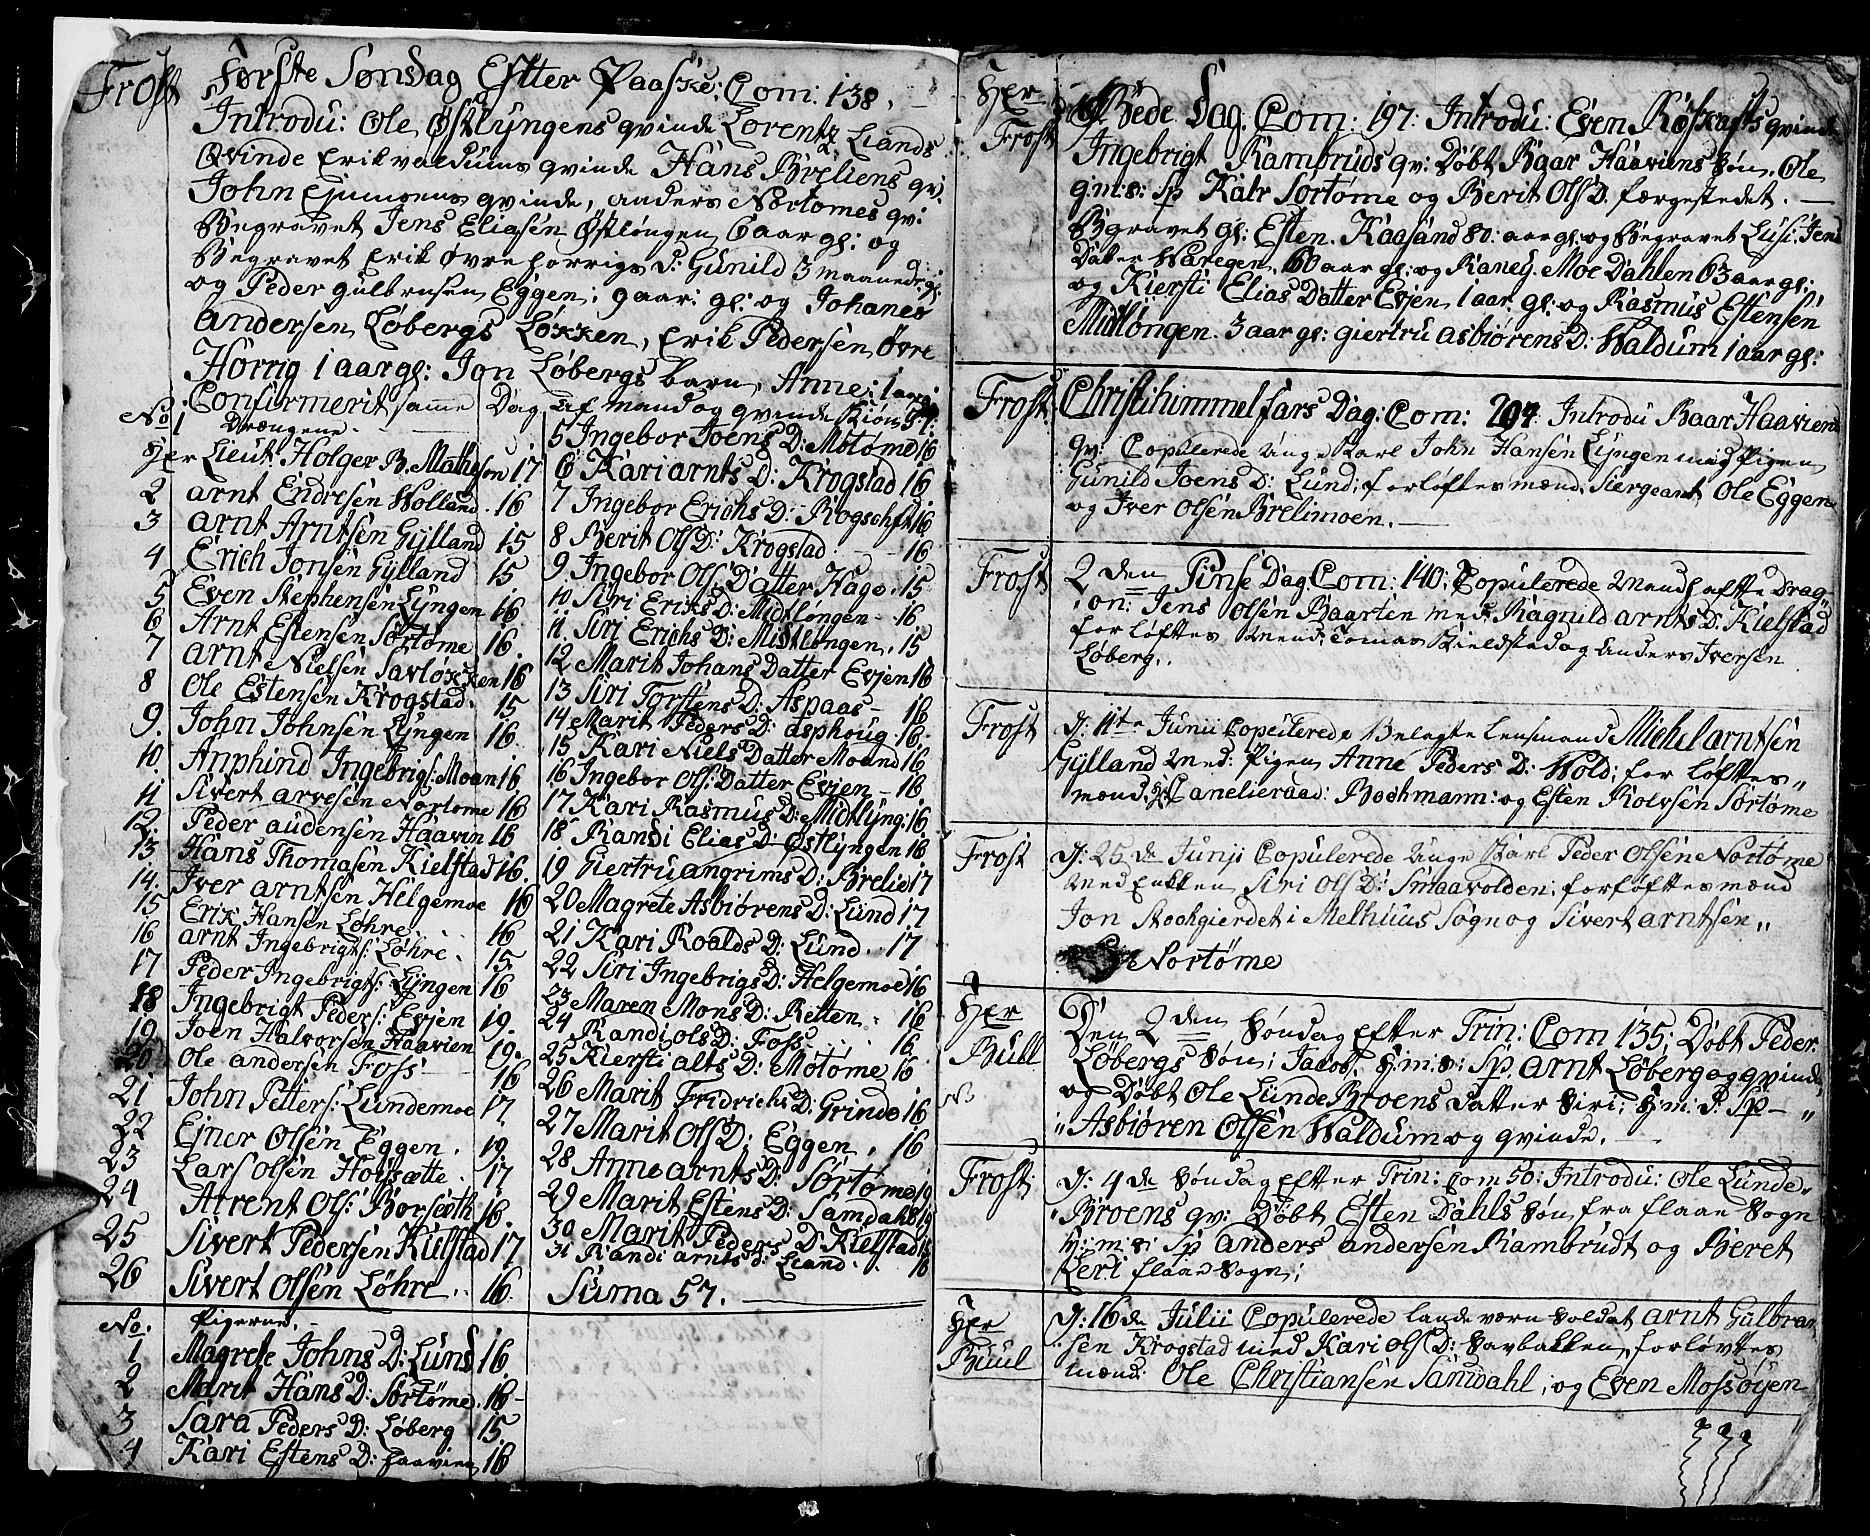 Frost
Første Søndag Efter Paaske: Com: 138.
Introdu: Ole Østlyngens qvinde Lorentz Liands
Qvinde Erik valdums qvinde Hans Breliens qv:
John qvinde, anders Nortømes qv:
Begravet Jens Eliasen Østløngen 6 aar gl: og
Begravet Erik Øvre horrigs D: Gunild 3 maaneder gl:
og Peder gulbrnsen Eggen; 9 aar: gl: og Johanes
andersen Løbergs Løkken, Erik Pedersen Øvre
Horrig 1 aar gl: Jon Løbergs barn, Anne: 1 aar
Confirmerit samme Dag af mand og qvinde Kiøn 57:
No 1 Drængene.
Her Lieut. Holger B. Matheson 17
2 arnt Endresen Wolland. 16
3 arnt Arntsen Gylland 15
4 Erich Jonsen Gylland 15
5 Even Stephensen Lyngen 16
6 Arnt Estensen Sørtøme 16.
7 arnt Nielsen Savløkken 16
8 Ole Estensen Krogstad. 15
9. John Johnsen Lyngen 16
10. Amphind Ingebrigs: Moan 16
11 Sivert arvesen Nortome 16
12. Peder audensen Haavin 16
13. Hans Thomasen Kielstad 16.
14. Iver arntsen Helgemoe 16
15 Erik Hansen Løhre. 16
16 arnt Ingebrigts: Løhre. 15.
17 Peder Ingebrigts: Lyngen 16
18 Ingebrigt Peders: Evjen 19.
19 Joen Halvorsen Haavien 19.
20 Ole andersen Foss 16
21 John Petters: Lundemoe 17
22 Ejner Olsen Eggen. 19.
23 Lars olsen Hofsætte. 17
24 Atrent Ols: Borseth 16.
25 Sivert Pedersen Kielstad 17
26 Sivert Olsen Løhre. 16.
No. Pigerne.
1 Magrete Johns D: Lund 16
2 Marit Hans D: Sortøme. 16
3 Sara Peders D: Løberg 15
4 Kari Estens D: Haavien 16
5 Ingebor Joens D: Motøme 16
6 Kari arnts D: Krogstad 16
7 Ingebor Erichs D: Rogschft 16
8 Berit Ols D: Krogstad 16
9. Ingebor Ols: Datter Hage. 15
10 Siri Eriks D: Midtlongen 16.
11. Siri Erichs D: Midtlongen. 15
12 Marit Johans Datter Evjen 16
13 Siri Torstens D: Aspaas 16
14 Marit Peders D: asphoug 16.
15 Kari Niels Datter Moand 16
16 Ingebor Ols: Datter Evjen 16
17. Kari Rasmus D: Midtlyng: 16
18 Randi Elias D Østlyngen 16
19 Giertru angrims D: Brelie 17
20 Magrete Asbiørens D: Lund 17
21 Kari Roalds D: Lund. 17
22 Siri Ingebrigs D: Helgemoe 16
23 Maren Mons D: Retten 16
24 Randi ols D: Foss. 16.
25 Kiersti alts D: Motøme 16
26 Marit Fridrichs D: Grinde 16
27 Marit Ols D: Eggen, 16
28 Anne arnts D: Sørtøme 19
29 Marit Estens D: Samdahl 19
30 Marit Peders D. Kielstad 16
31 Randi arnts D: Liand. 16
Suma 57.
Her Frost
Bede Dag. Com: 197: Introdu: Even Røskafts qvinde
Ingebrigt Rambruds qv: Døbt Baar Haaviens Søn. Ole
g: m: s: Sp Kalr Sortøme og Berit Ols D. færgestedet.
Begravet gl: Esten. Kaasand 80: aar gl: og Begravet Lusi: Jens
Datter Waregen, 60 aar gl: og Raney. Moe Dahlen 63 aar gl:
og Kiersti Elias Datter Evjen 1 aar gl: og Rasmus Estensen
Midtløngen. 3 aar gl: giertru asbiørens D: Waldum 1 aar gl:
Frost
Christihimmelfars Dag: Com: 294: Introdu Baar Haaviens
qv: Copulerede Unge Karl John Hansen Lyngen med Pigen
Gunild Joens D: Lund; forløftes mænd: Siergeant Ole Eggen
og Iver Olsen Brelimoen.
Frost
2 den Pinse Dag. Com: 140; Copulerede afte Drag
on: Jens Olsen Baarlien med: Ragnild arnts D: Kielstad
forløftes Mend: Tomas Kielsted og Anders Iversen
Løberg.
Frost
D: 11te Junii Copulerede Velagte Lensmand Michel arntsen
Gylland Med: Pigen Anne Peders D: Wold; for løftes
mænd: Hr Cancelieraad: Bochmann: og Esten Rolvsen Sørtøme
Frost
D: 25 de Junji Copulerede Unge Karl Peder Olsen Nortøme
Med Enken Siri Ols D: Smaavolden; forløftes mænd
Jon Stochgierdet i Melhuus Sogn og Sivert arntsen
Nortøme
Her Bull
Den 2 den Søndag efter Trin: Com 135; Døbt Peder
Løbergs Søn; Jacob, h: m: s: Sp. arnt Løberg og qvinde
N.
og Døbt Ole Lunde Broens Datter Siri; h: m: D: Sp
Asbiøren Olsen Waldum og qvinde.
Frost
D: 4 de Søndag efter Trin: Com 50: Introdu: Ole Lunde
Broens qv: Døbt Esten Dahls Søn, fra flaae Sogn
h: m: s: Sp anders andersen Rambrudt og Beret
Leri flaae Sogn;
Her Buul
D: 16 de Julii Copulerede lande værn Soldat arnt Gulbran
sen Krogstad med Kari Ols D: Savbakken, forløvtes
mænd: Ole Christiansen Samdahl; og Even Mossøyen